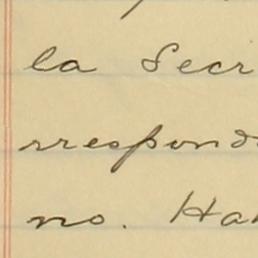 la Secr
rrespond
no. Ha